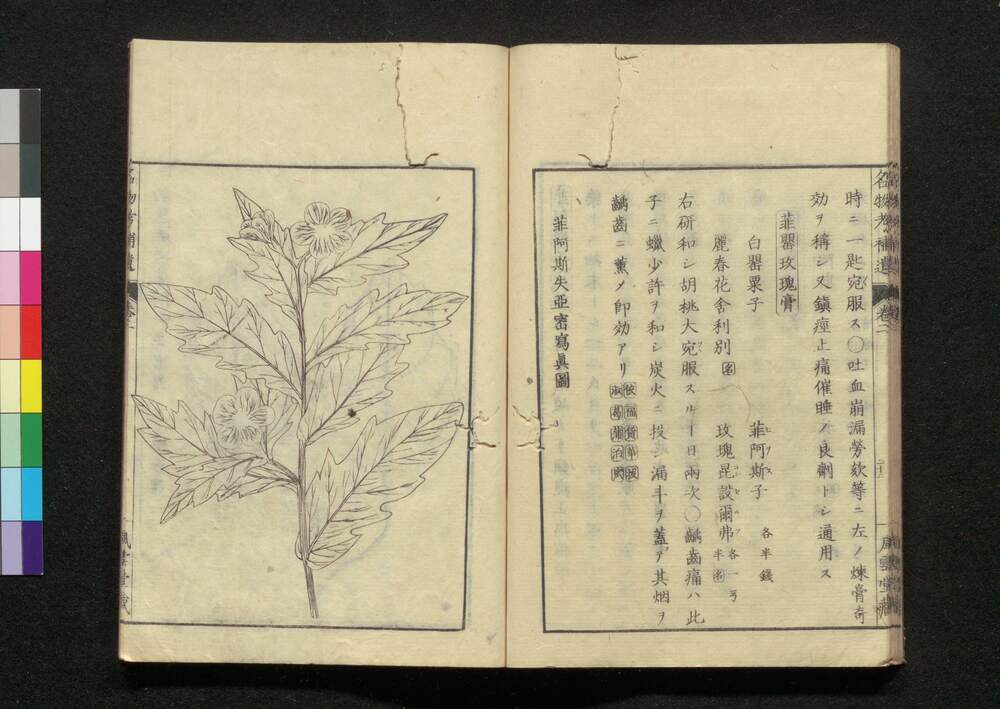 名物考補遺 卷二
時ニ一匙宛服ス〇吐血崩漏勞欬等ニ左ノ煉膏奇
効ヲ稱シ又鎭痙止痛催睡ノ良劑トシ通用ス
菲罌玫瑰膏
白罌粟子 菲阿斯子 各半錢
麗春花舍利別 玫瑰昆設爾弗 各一
右研和シ胡桃大宛服スル一日兩次〇齲齒痛ハ此
子ニ蠟少許ヲ和シ炭火ニ投シ漏斗ヲ蓋ヒ其烟ヲ
齲齒ニ熏メ即効アリ
菲阿斯失亞密寫眞圖
風雲堂藏
名物考補遺 卷二
風雲堂藏